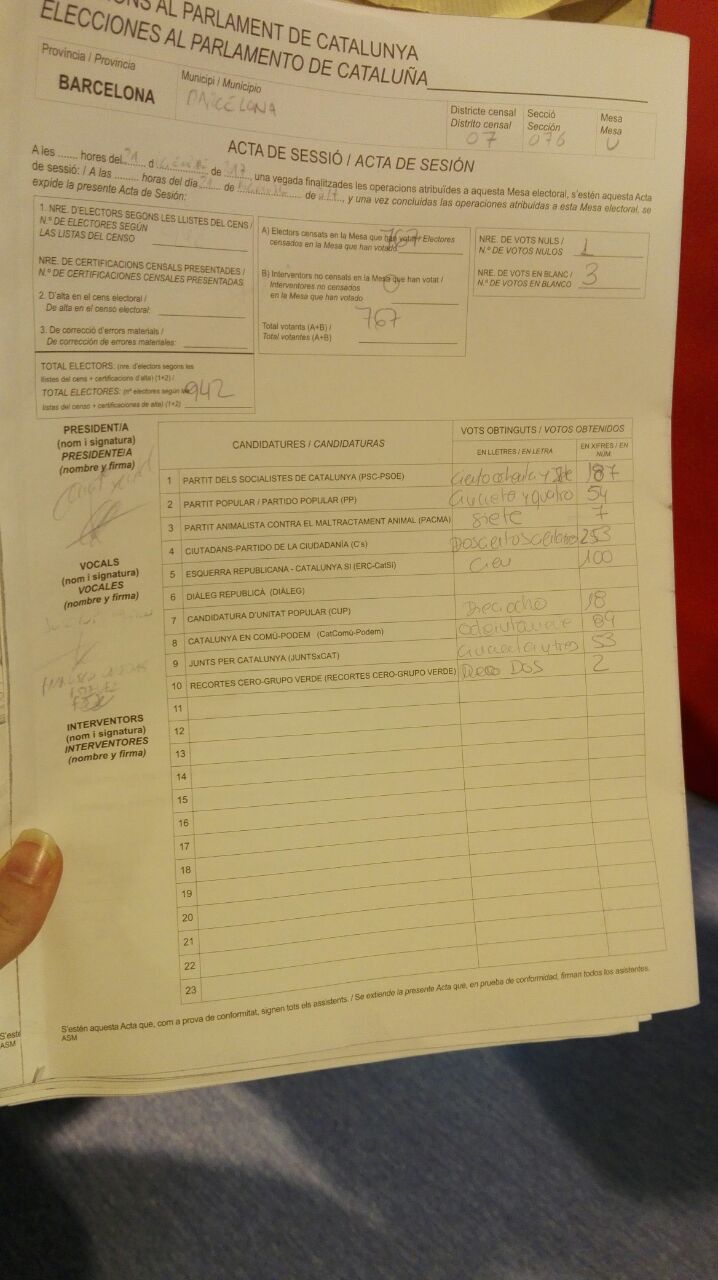 ONS AL PARLAMENT DE CATALUNYA
ELECCIONES AL PARLAMENTO DE CATALUÑA
Provincia / Provincia
BARCELONA
Municipi / Municipio
BARCELONA
Districte censal
Distrito censal
07
Secció
Sección
076
Mesa
Mesa
U
ACTA DE SESSIÓ / ACTA DE SESIÓN
A les ....... hores del 21 d ... de 17, una vegada finalitzades les operacions atribuïdes a aquesta Mesa electoral, s'estén aquesta Acta
de sessió: / A las ......... horas del día 21 de ... de ..., y una vez concluidas las operaciones atribuidas a esta Mesa electoral, se
expide la presente Acta de Sesión:
1. NRE. D'ELECTORS SEGONS LES LLISTES DEL CENS /
N.º DE ELECTORES SEGÚN
LAS LISTAS DEL CENSO
NRE. DE CERTIFICACIONS CENSALS PRESENTADES /
N.º DE CERTIFICACIONES CENSALES PRESENTADAS
2. D'alta en el cens electoral /
De alta en el censo electoral:
3. De correcció d'errors materials /
De corrección de errores materiales:
TOTAL ELECTORS: (nre. d'electors segons les
llistes del cens + certificacions d'alta) (1+2) /
TOTAL ELECTORES: (nº electores según las 942
listas del censo + certificaciones de alta) (1+2)
A) Electors censats en la Mesa que han votat / Electores
censados en la Mesa que han votado 767
B) Interventors no censats en la Mesa que han votat /
Interventores no censados 0
en la Mesa que han votado
Total votants (A+B) / 767
Total votantes (A+B)
NRE. DE VOTS NULS /
N.º DE VOTOS NULOS 1
NRE. DE VOTS EN BLANC /
N.º DE VOTOS EN BLANCO 3
PRESIDENT/A
(nom i signatura)
PRESIDENTE/A
(nombre y firma)
VOCALS
(nom i signatura)
VOCALES
(nombre y firma)
INTERVENTORS
(nom i signatura)
INTERVENTORES
(nombre y firma)
CANDIDATURES / CANDIDATURAS
VOTS OBTINGUTS / VOTOS OBTENIDOS
EN LLETRES / EN LETRA
EN XIFRES / EN NÚM.
1 PARTIT DELS SOCIALISTES DE CATALUNYA (PSC-PSOE) Ciento ochenta y siete 187
2 PARTIT POPULAR / PARTIDO POPULAR (PP) Cincuenta y quatro 54
3 PARTIT ANIMALISTA CONTRA EL MALTRACTAMENT ANIMAL (PACMA) Siete 7
4 CIUTADANS-PARTIDO DE LA CIUDADANÍA (C's) 253
5 ESQUERRA REPUBLICANA - CATALUNYA SI (ERC-CatSI) Cien 100
6 DIÀLEG REPUBLICÀ (DIÀLEG)
7 CANDIDATURA D'UNITAT POPULAR (CUP) Dieciocho 18
8 CATALUNYA EN COMÚ-PODEM (CatComú-Podem) 89
9 JUNTS PER CATALUNYA (JUNTSxCAT) Cincuenta y tres 53
10 RECORTES CERO-GRUPO VERDE (RECORTES CERO-GRUPO VERDE) DOS 2
11
12
13
14
15
16
17
18
19
20
21
22
23
S'estén aquesta Acta que, com a prova de conformitat, signen tots els assistents. / Se extiende la presente Acta que, en prueba de conformidad, firman todos los asistentes.
ASM
S'esté
ASM